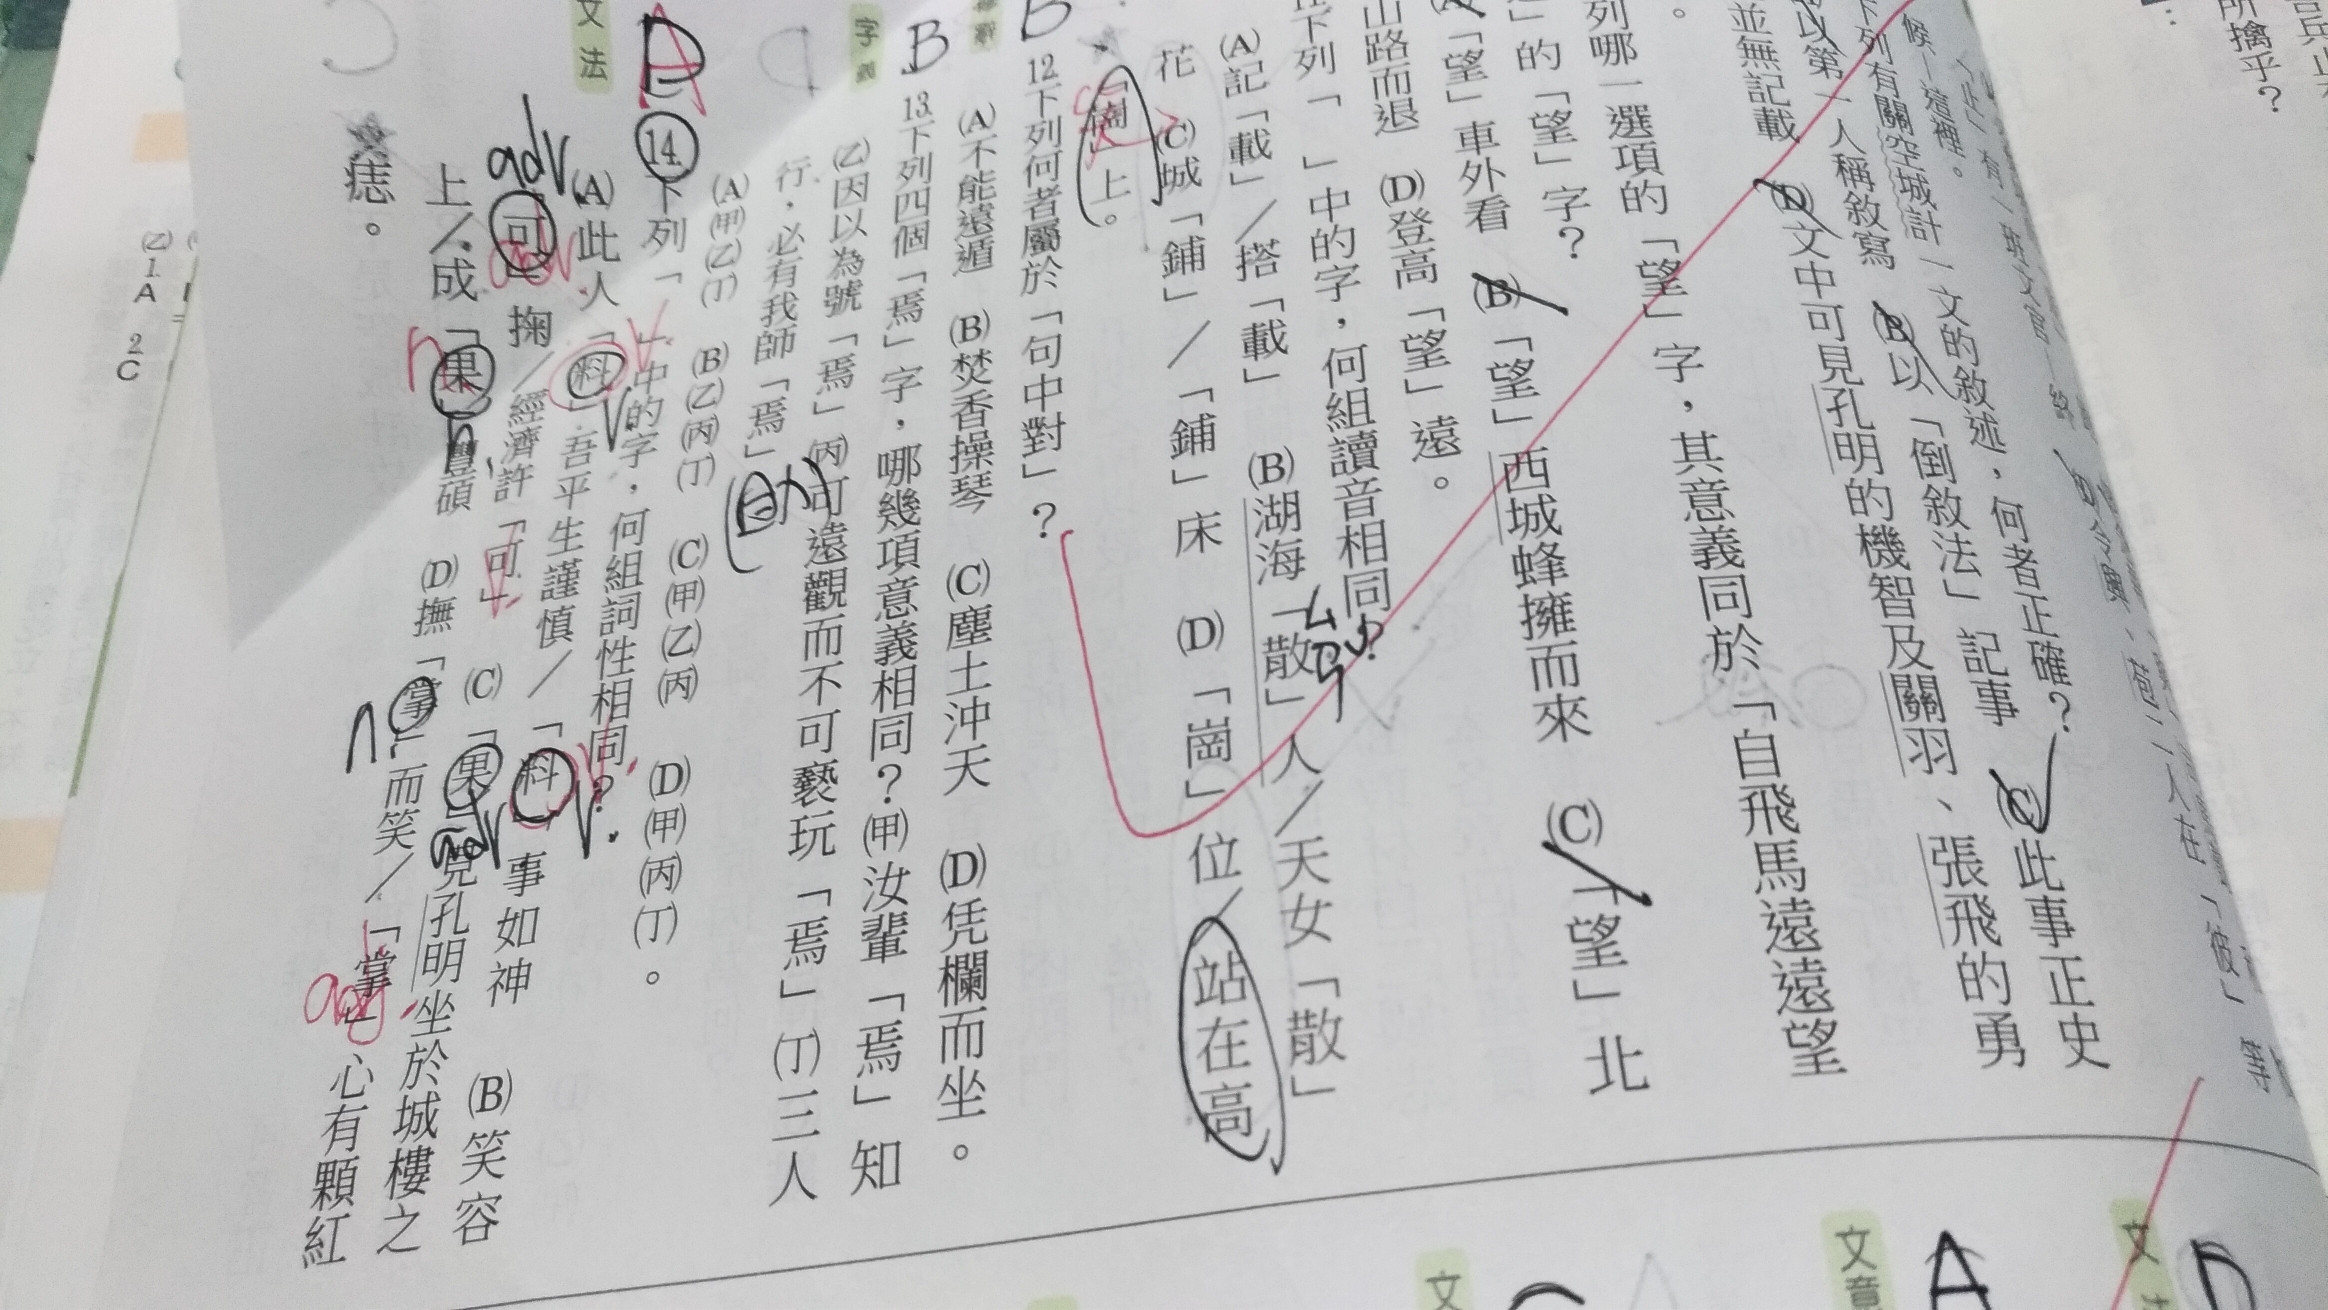 所擒乎?
候─這裡。
下列有關空城計一文的敘述,何者正確?
以第一人稱敘寫 (B)以「倒敘法」記事 (C)此事正史
並無記載 (D)文中可見孔明的機智及關羽、張飛的勇
列哪一選項的「望」字,其意義同於「自飛馬遠遠望
」的「望」字?
「望」車外看 (B)「望」西城蜂擁而來 (C)「望」北
山路而退 (D)登高「望」遠。
下列「 」中的字,何組讀音相同?
(A)記「載」/搭「載」 (B)湖海「散」人/天女「散」
花 (C)城「鋪」/「鋪」床 (D)「崗」位/站在高
「崗」上。
B
12.下列何者屬於「句中對」?
(A)不能遠遁 (B)焚香操琴 (C)塵土沖天 (D)凭欄而坐。
B
字義
13.下列四個「焉」字,哪幾項意義相同?(甲)汝輩「焉」知
(乙)因以為號「焉」(丙)可遠觀而不可褻玩「焉」(丁)三人
行,必有我師「焉」
(A)(甲)(乙)(丁) (B)(乙)(丙)(丁) (C)(甲)(乙)(丙) (D)(甲)(丙)(丁)。
D
文法
14.下列「 」中的字,何組詞性相同?
(A)此人「料」吾平生謹慎/「料」事如神 (B)笑容
「可」掬/經濟許「可」 (C)「果」見孔明坐於城樓之
上/成「果」豐碩 (D)撫「掌」而笑/「掌」心有顆紅
痣。
adv
adv
v
v
v
n
n
adv
n
adj
(乙)1.A 2.C
文
文意
A
文
D